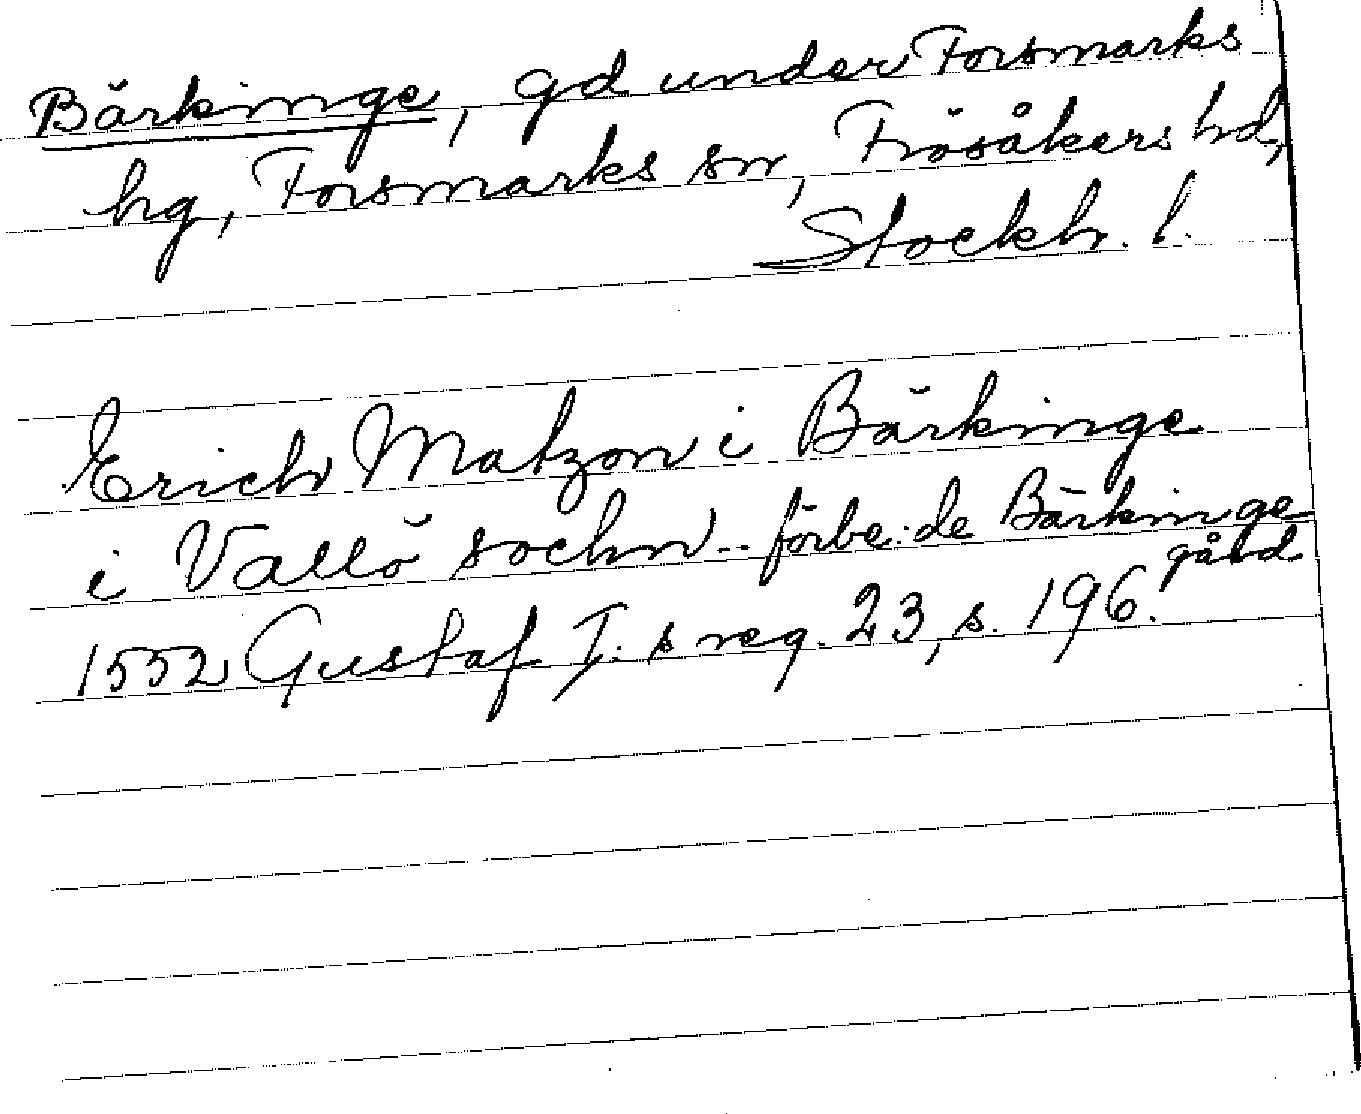 Bärkinge, gd under Forsmarks
hg, Forsmarks sn, Frösåkers hd,
Stockh. l.
Erich Matzon i Bärkinge
i Vallö sochn .. förbe:de Bärkinge
gård
1552 Gustaf I:s reg. 23, s. 196.